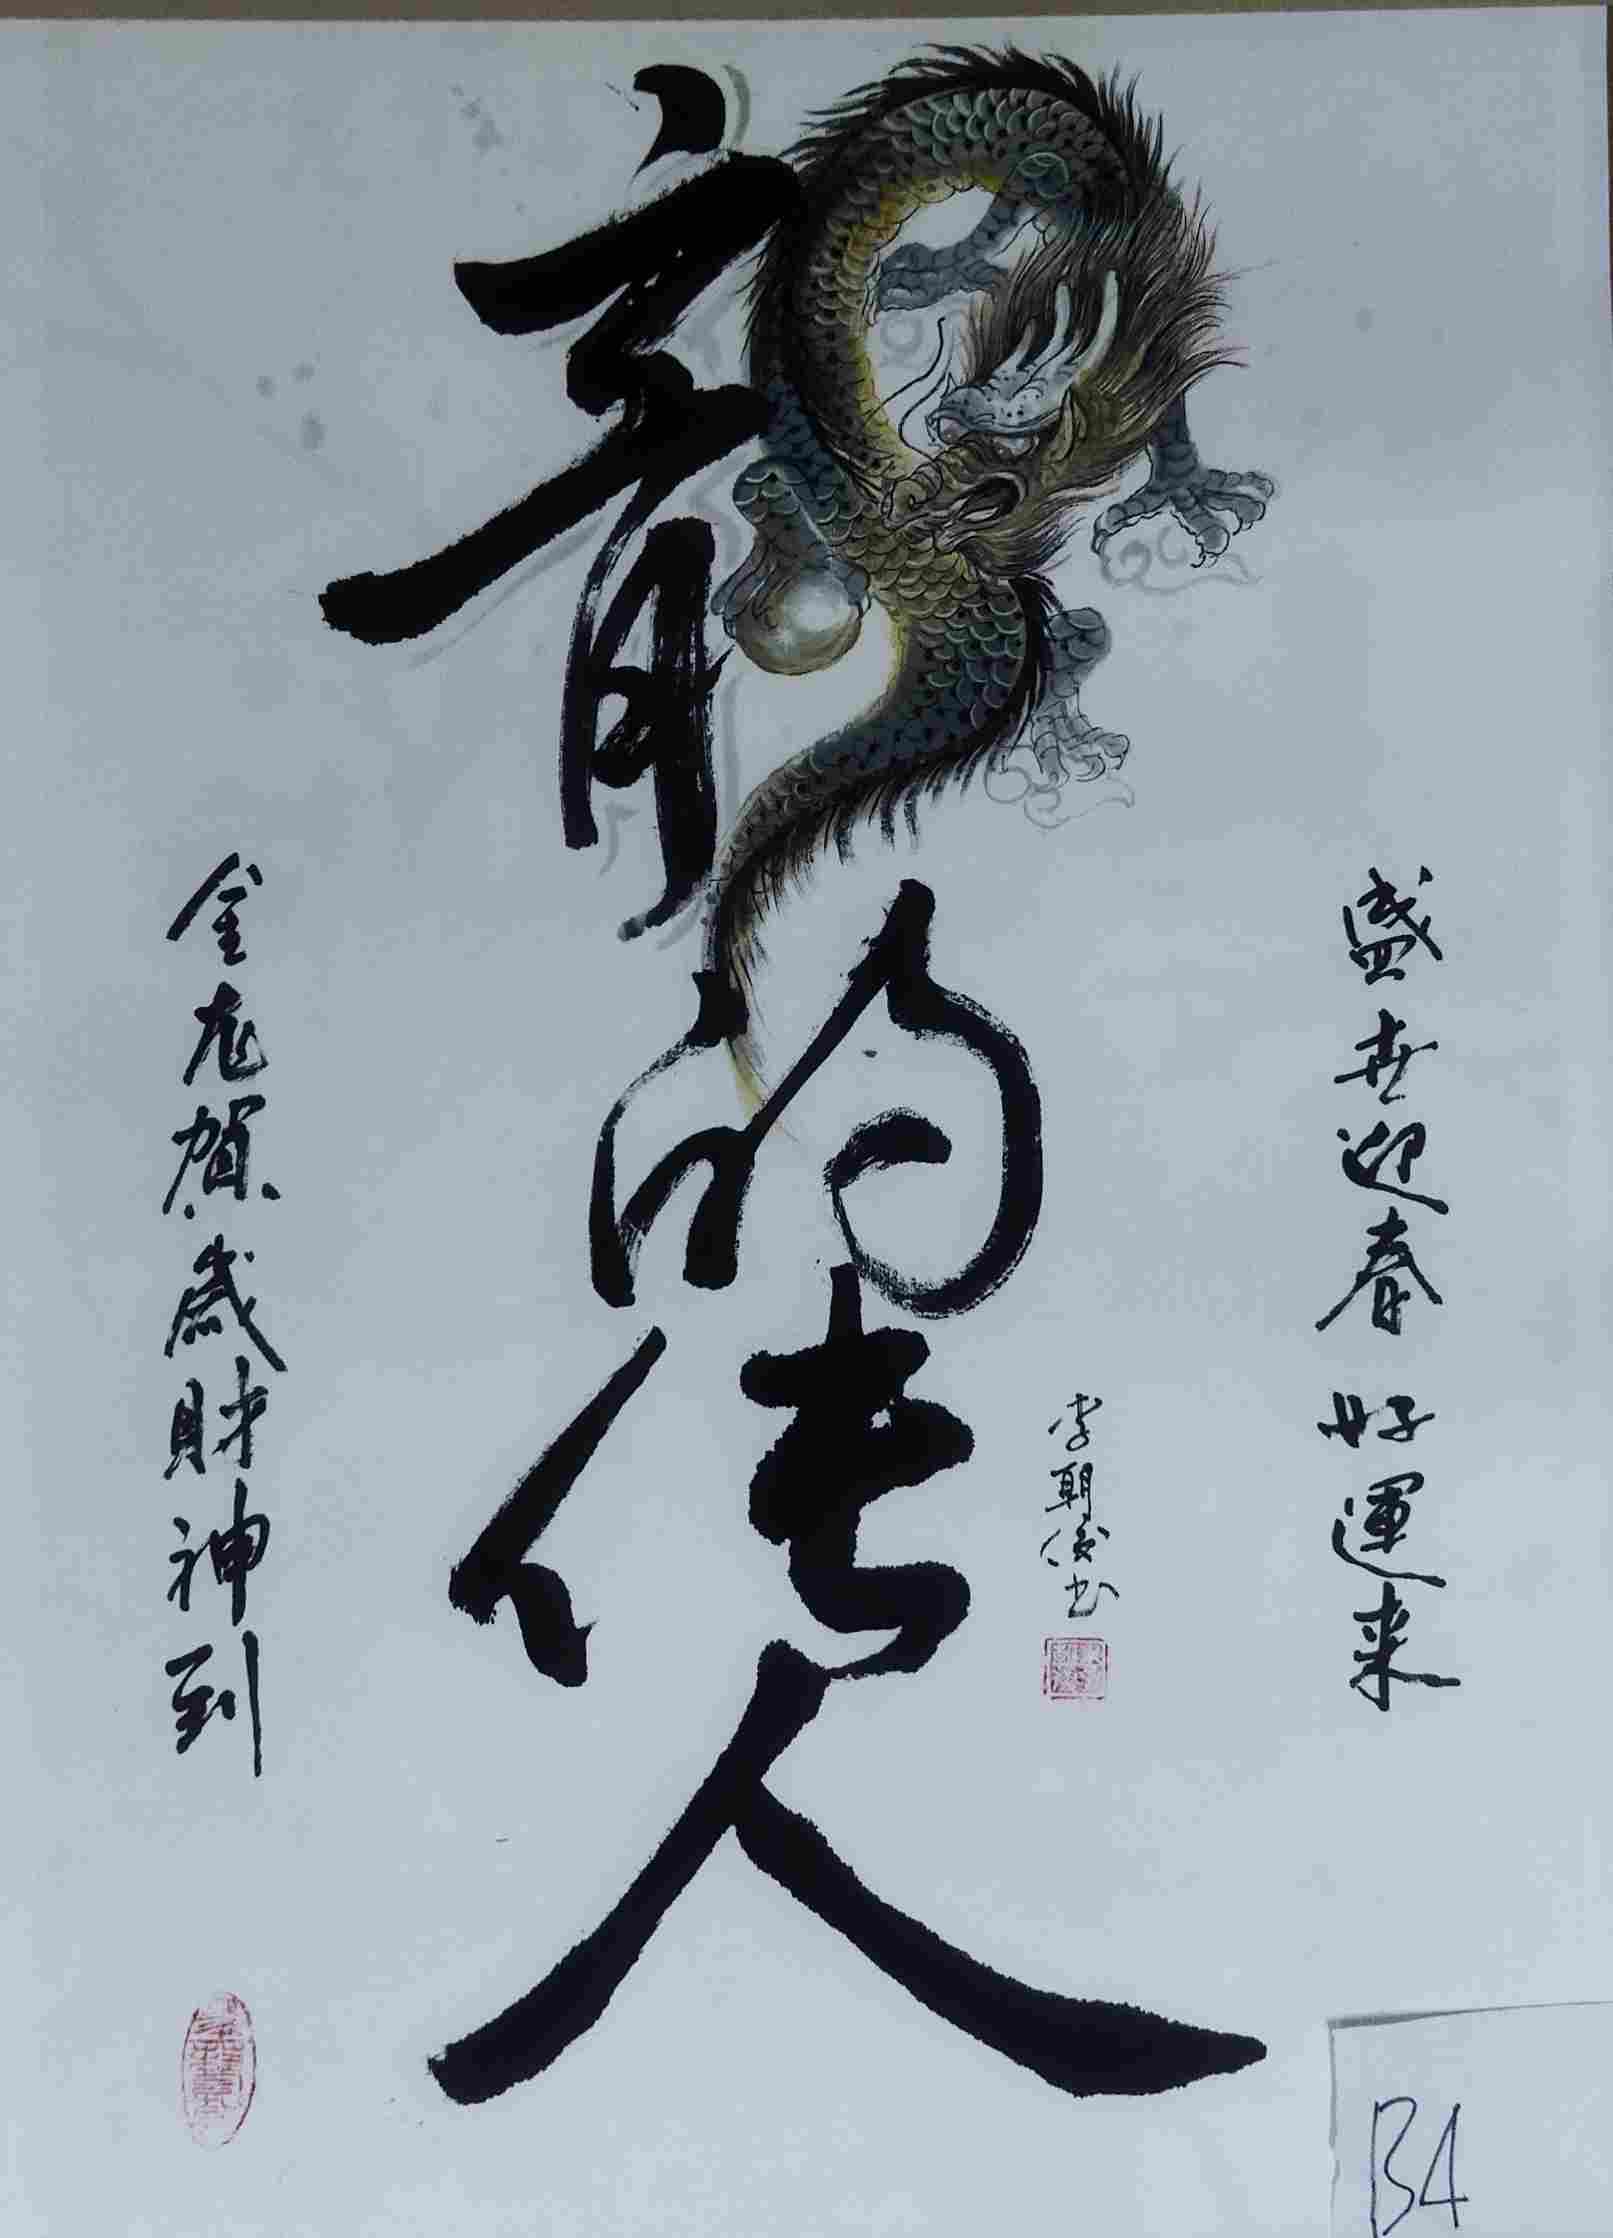 盛世迎春好運来
龍的传人
李朝俊书
金龙賀歲財神到
B4